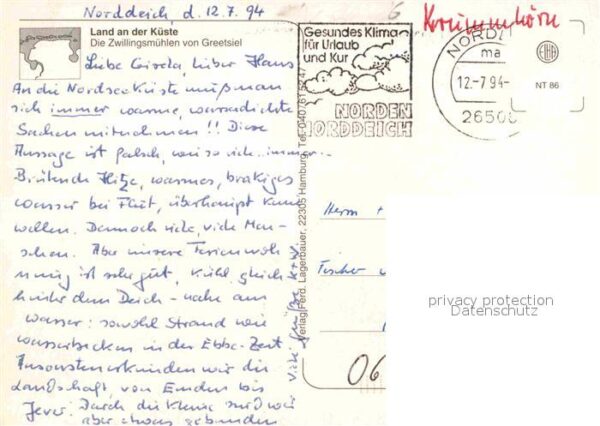 Norddeich, d. 12.7.94
Land an der Küste
Die Zwillingsmühlen von Greetsiel
Liebe Gisela, lieber Hans
An die Nordseeküste muß man
sich immer warme, wasserdichte
Sachen mitnehmen!! Diese
Aussage ist falsch, wie so viele immer...
Brütende Hitze, warmes, brakiges
wasser bei Flut, überhaupt kaum
wellen. Dennoch viele, viele Men-
schen. Aber unsere Ferienwoh
nung ist sehr gut, kühl gleich
hinter dem Deich - nahe am
wasser: sowohl Strand wie
wasserbecken in der Ebbe-Zeit
Ansonsten erkunden wir die
Landschaft, von Emden bis
Jever. Durch die Kleine sind wir
aber etwas gebunden
Viele Grüße
Verlag Ferd. Lagerbauer, 22305 Hamburg, Tel. 040/61 52 47
Krummhörn
6
Gesundes Klima
für Urlaub
und Kur
NORDEN
NORDDEICH
NORD
ma
12.-7.94-
26506
NT 86
Herrn +
Fischer
06
privacy protection
Datenschutz